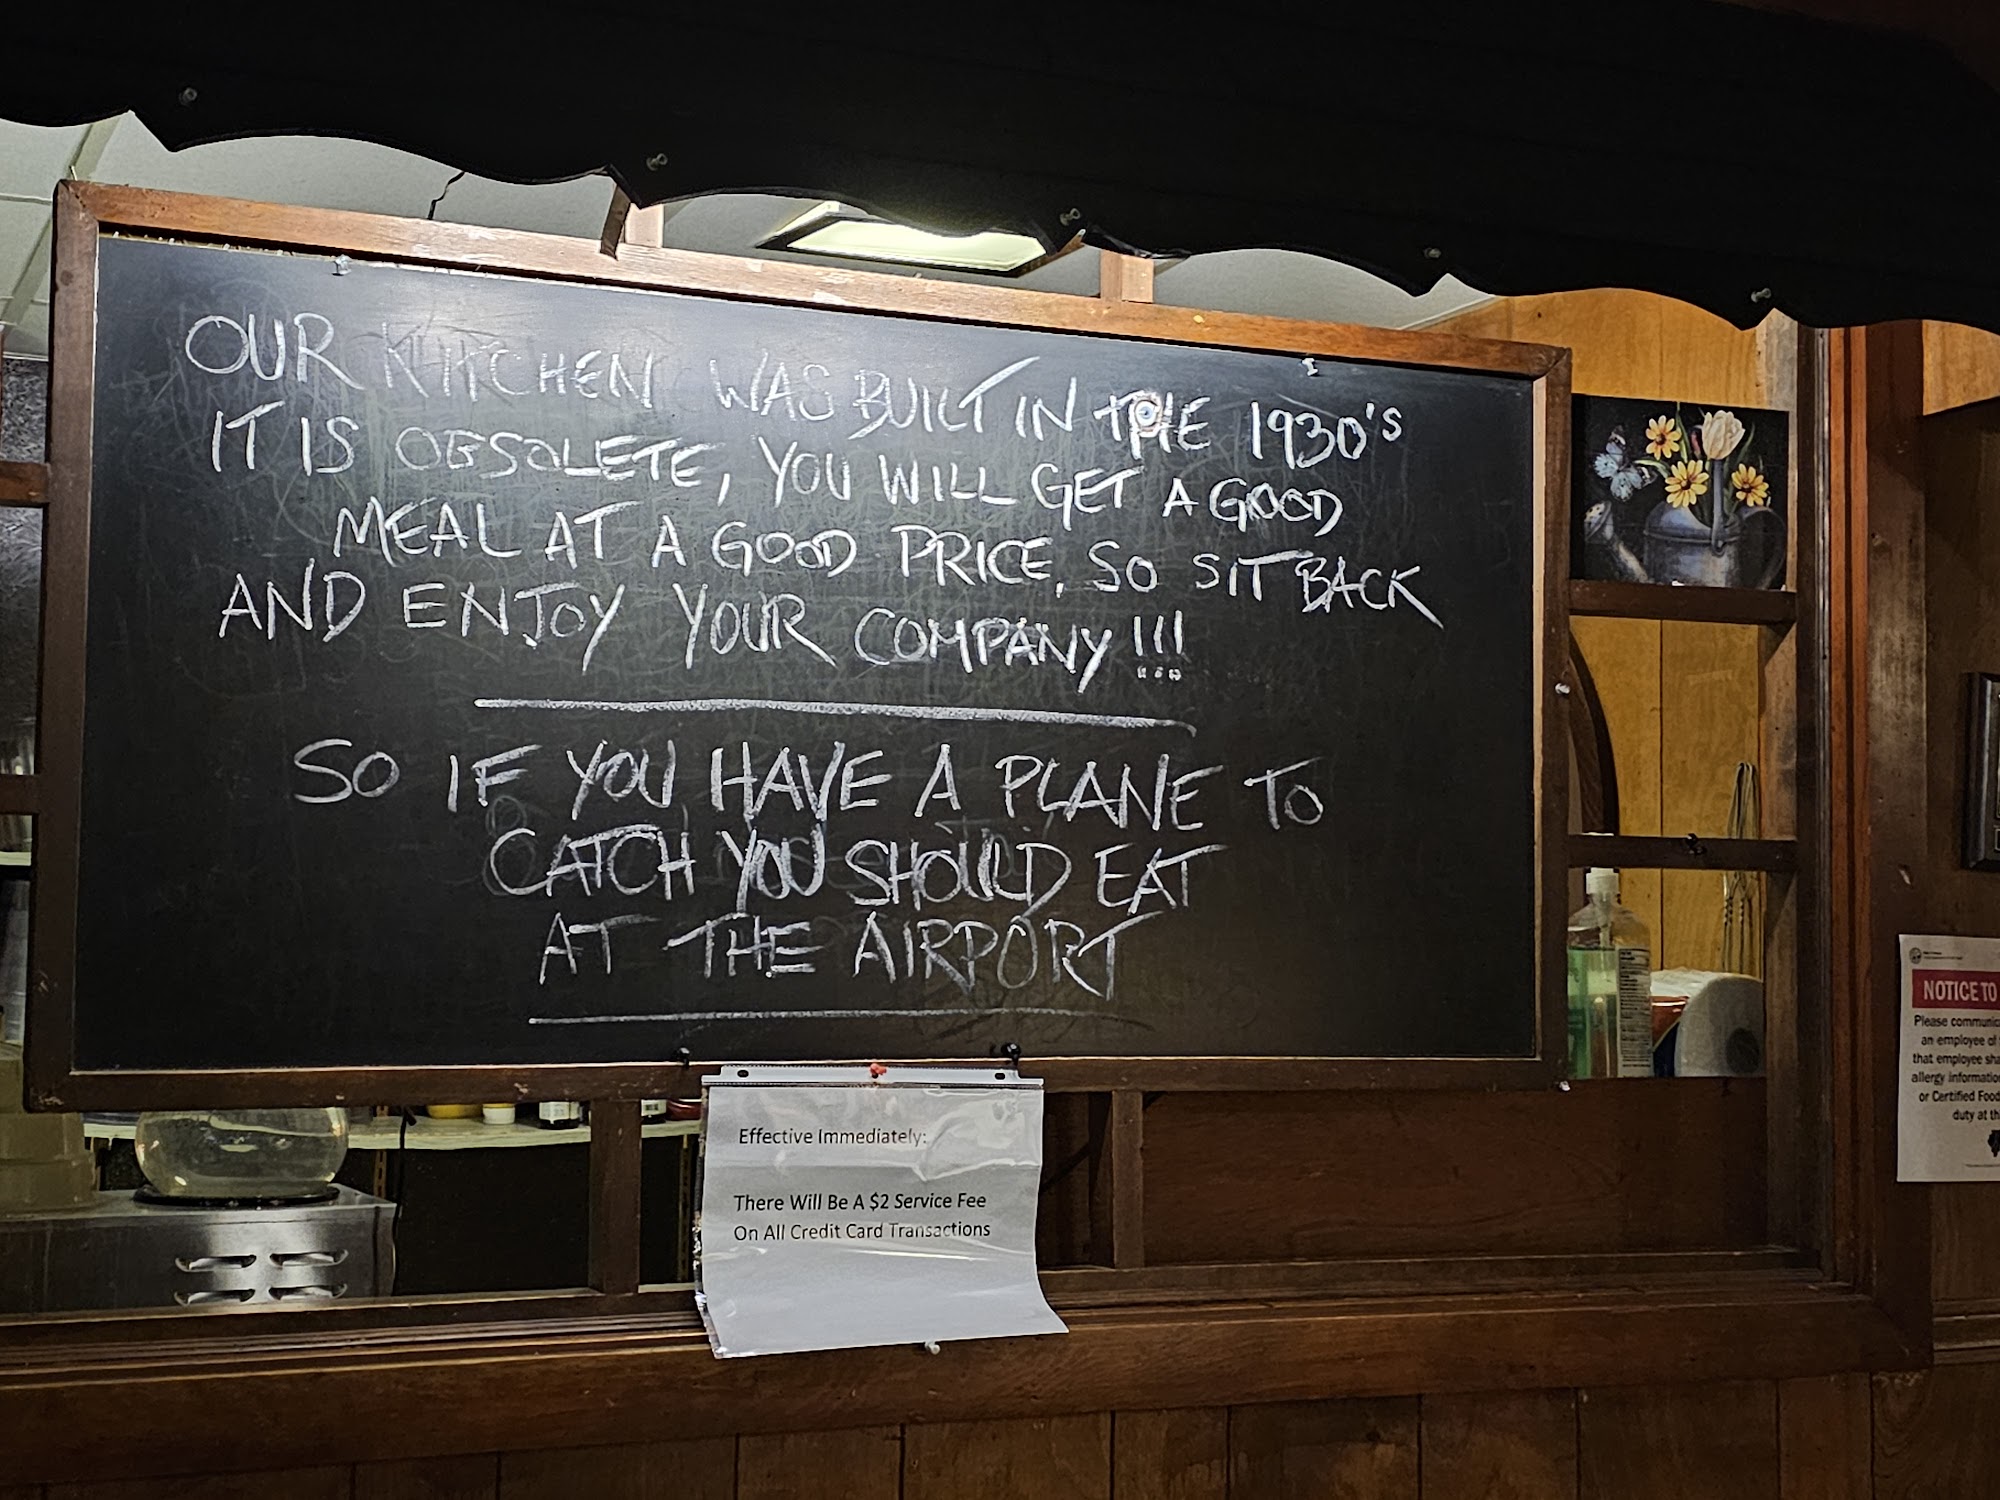 OUR KITCHEN WAS BUILT IN THE 1930'S
IT IS OBSOLETE, YOU WILL GET A GOOD
MEAL AT A GOOD PRICE, SO SIT BACK
AND ENJOY YOUR COMPANY!!!
SO IF YOU HAVE A PLANE TO
CATCH YOU SHOULD EAT
AT THE AIRPORT
Effective Immediately:
There Will Be A $2 Service Fee
On All Credit Card Transactions
NOTICE TO
Please communic
an employee of
that employee sha
allergy informatio
or Certified Food
duty at th